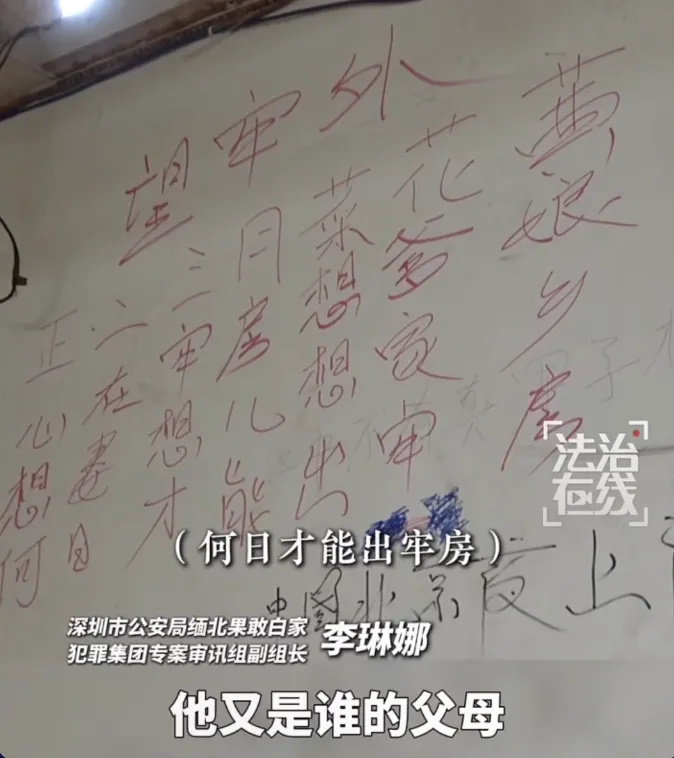 望牢外
正二三月菜花黄
心在牢房想爹娘
想妻想儿想家乡
何日才能出牢房
法治
在线
（何日才能出牢房）
中国北京
上
深圳市公安局缅北果敢白家
犯罪集团专案审讯组副组长
李琳娜
他又是谁的父母